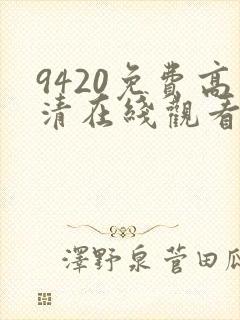 9420免費高
清在綫觀看
澤野泉菅田瓜